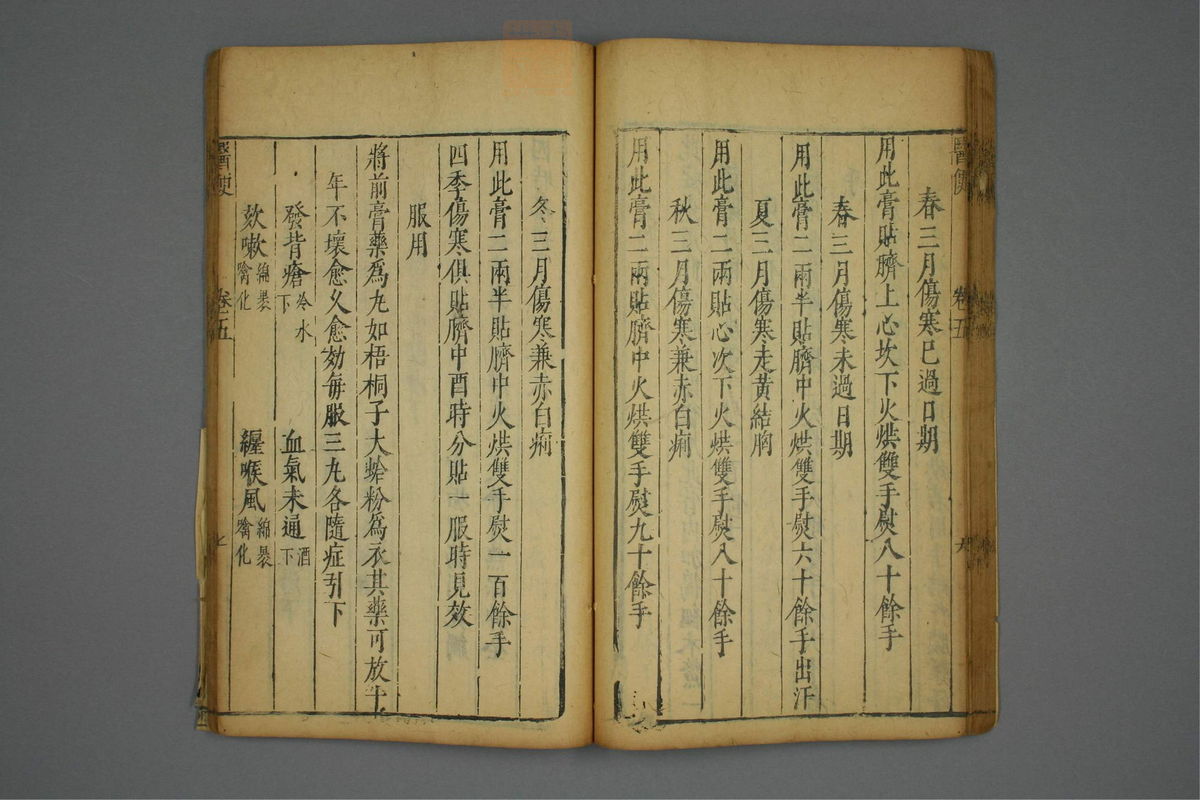 醫便
卷五
春三月傷寒已過日期
用此膏貼臍上心坎下火烘雙手熨八十餘手
春三月傷寒未過日期
用此膏二兩半貼臍中火烘雙手熨六十餘手出汗
夏三月傷寒走黃結胸
用此膏二兩貼心次下火烘雙手熨八十餘手
秋三月傷寒兼赤白痢
用此膏二兩貼臍中火烘雙手熨九十餘手
冬三月傷寒兼赤白痢
用此膏二兩半貼臍中火烘雙手熨一百餘手
四季傷寒俱貼臍中酉時分貼一服時見效
服用
將前膏藥為丸如梧桐子大蛤粉為衣其藥可放十
年不壞愈久愈効每服三丸各隨症引下
發背瘡冷水下 血氣未通酒下
欬嗽綿褁噙化 纏喉風綿褁噙化
醫便
卷五
七